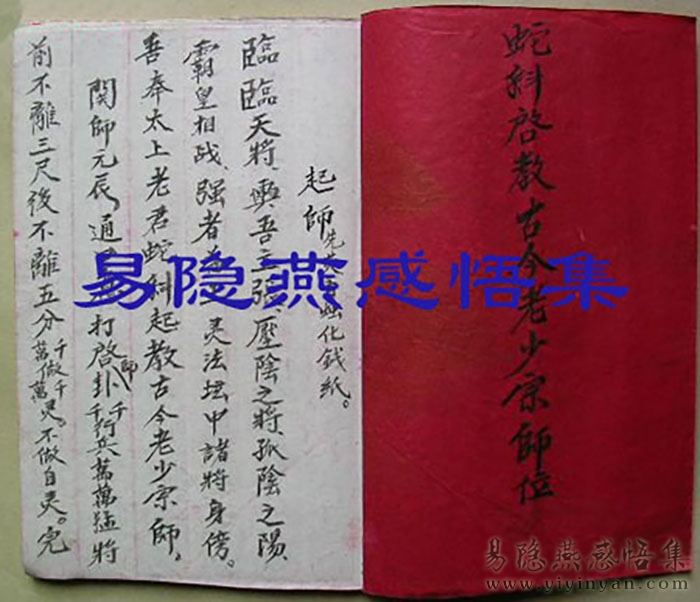 蛇科启教古今老少宗師位
起師先
化錢紙。
臨臨天將、與吾主張、壓陰之將、孤陰之陽、
霸皇相战、强者 灵法坛中諸將身傍。
吾奉太上老君蛇科起教古今老少宗師。
関師元辰、通 打啓師卦千千行兵萬萬猛將
前不離三尺後不離五分千做千灵。萬做萬灵。不做自灵。完
易隐燕感悟集
易隐燕感悟集
www.yiyinyan.com